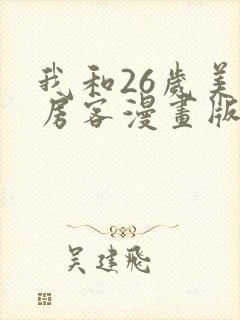 我和26岁美
房客漫畫版
吴建飛